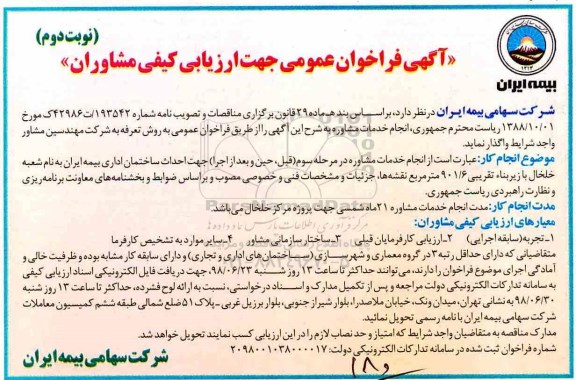 (نوبت دوم)
«آگهی فراخوان عمومی جهت ارزیابی کیفی مشاوران»
بیمه ایران
شرکت سهامی بیمه ایران در نظر دارد، براساس بند هـ ماده ۲۹ قانون برگزاری مناقصات و تصویب نامه شماره ۱۹۳۵۴۲/ت۴۲۹۸۶ک مورخ
۱۳۸۸/۱۰/۰۱ ریاست محترم جمهوری، انجام خدمات مشاوره به شرح این آگهی را از طریق فراخوان عمومی به روش تعرفه به شرکت مهندسین مشاور
واجد شرایط واگذار نماید.
موضوع انجام کار: عبارت است از انجام خدمات مشاوره در مرحله سوم (قبل، حین و بعد از اجرا) جهت احداث ساختمان اداری بیمه ایران به نام شعبه
خلخال با زیربناء تقریبی ۹۰۱/۶ مترمربع نقشه‌ها، جزئیات و مشخصات فنی و خصوصی مصوب و براساس ضوابط و بخشنامه‌های معاونت برنامه‌ریزی
و نظارت راهبردی ریاست جمهوری.
مدت انجام کار: مدت انجام خدمات مشاوره ۲۱ ماه شمسی جهت پروژه مرکز خلخال می‌باشد.
معیارهای ارزیابی کیفی مشاوران:
۱-تجربه (سابقه اجرایی) ۲-ارزیابی کارفرمایان قبلی ۳-ساختار سازمانی مشاور ۴-سایر موارد به تشخیص کارفرما
متقاضیانی که دارای حداقل رتبه ۳ در گروه معماری و شهرسازی (ساختمان‌های اداری و تجاری) و دارای سابقه کار مشابه بوده و ظرفیت خالی و
آمادگی اجرای موضوع فراخوان را دارند، می‌توانند حداکثر تا ساعت ۱۳ روز شنبه ۹۸/۰۶/۲۳ جهت دریافت فایل الکترونیکی اسناد ارزیابی کیفی
به سامانه تدارکات الکترونیکی دولت مراجعه و پس از تکمیل مدارک و اسناد درخواستی، نسبت به ارائه لوح فشرده، حداکثر تا ساعت ۱۳ روز شنبه
۹۸/۰۶/۳۰ به نشانی تهران، میدان ونک، خیابان ملاصدرا، بلوار شیراز جنوبی، بلوار برزیل غربی - پلاک ۵۱ ضلع شمالی طبقه ششم کمیسیون معاملات
شرکت سهامی بیمه ایران با نامه رسمی تحویل نمائید.
مدارک مناقصه به متقاضیان واجد شرایط که امتیاز و حد نصاب لازم را در این ارزیابی کسب نمایند تحویل خواهد شد.
شماره فراخوان ثبت شده در سامانه تدارکات الکترونیکی دولت: ۲۰۹۸۰۰۱۰۳۸۰۰۰۰۱۷
شرکت سهامی بیمه ایران